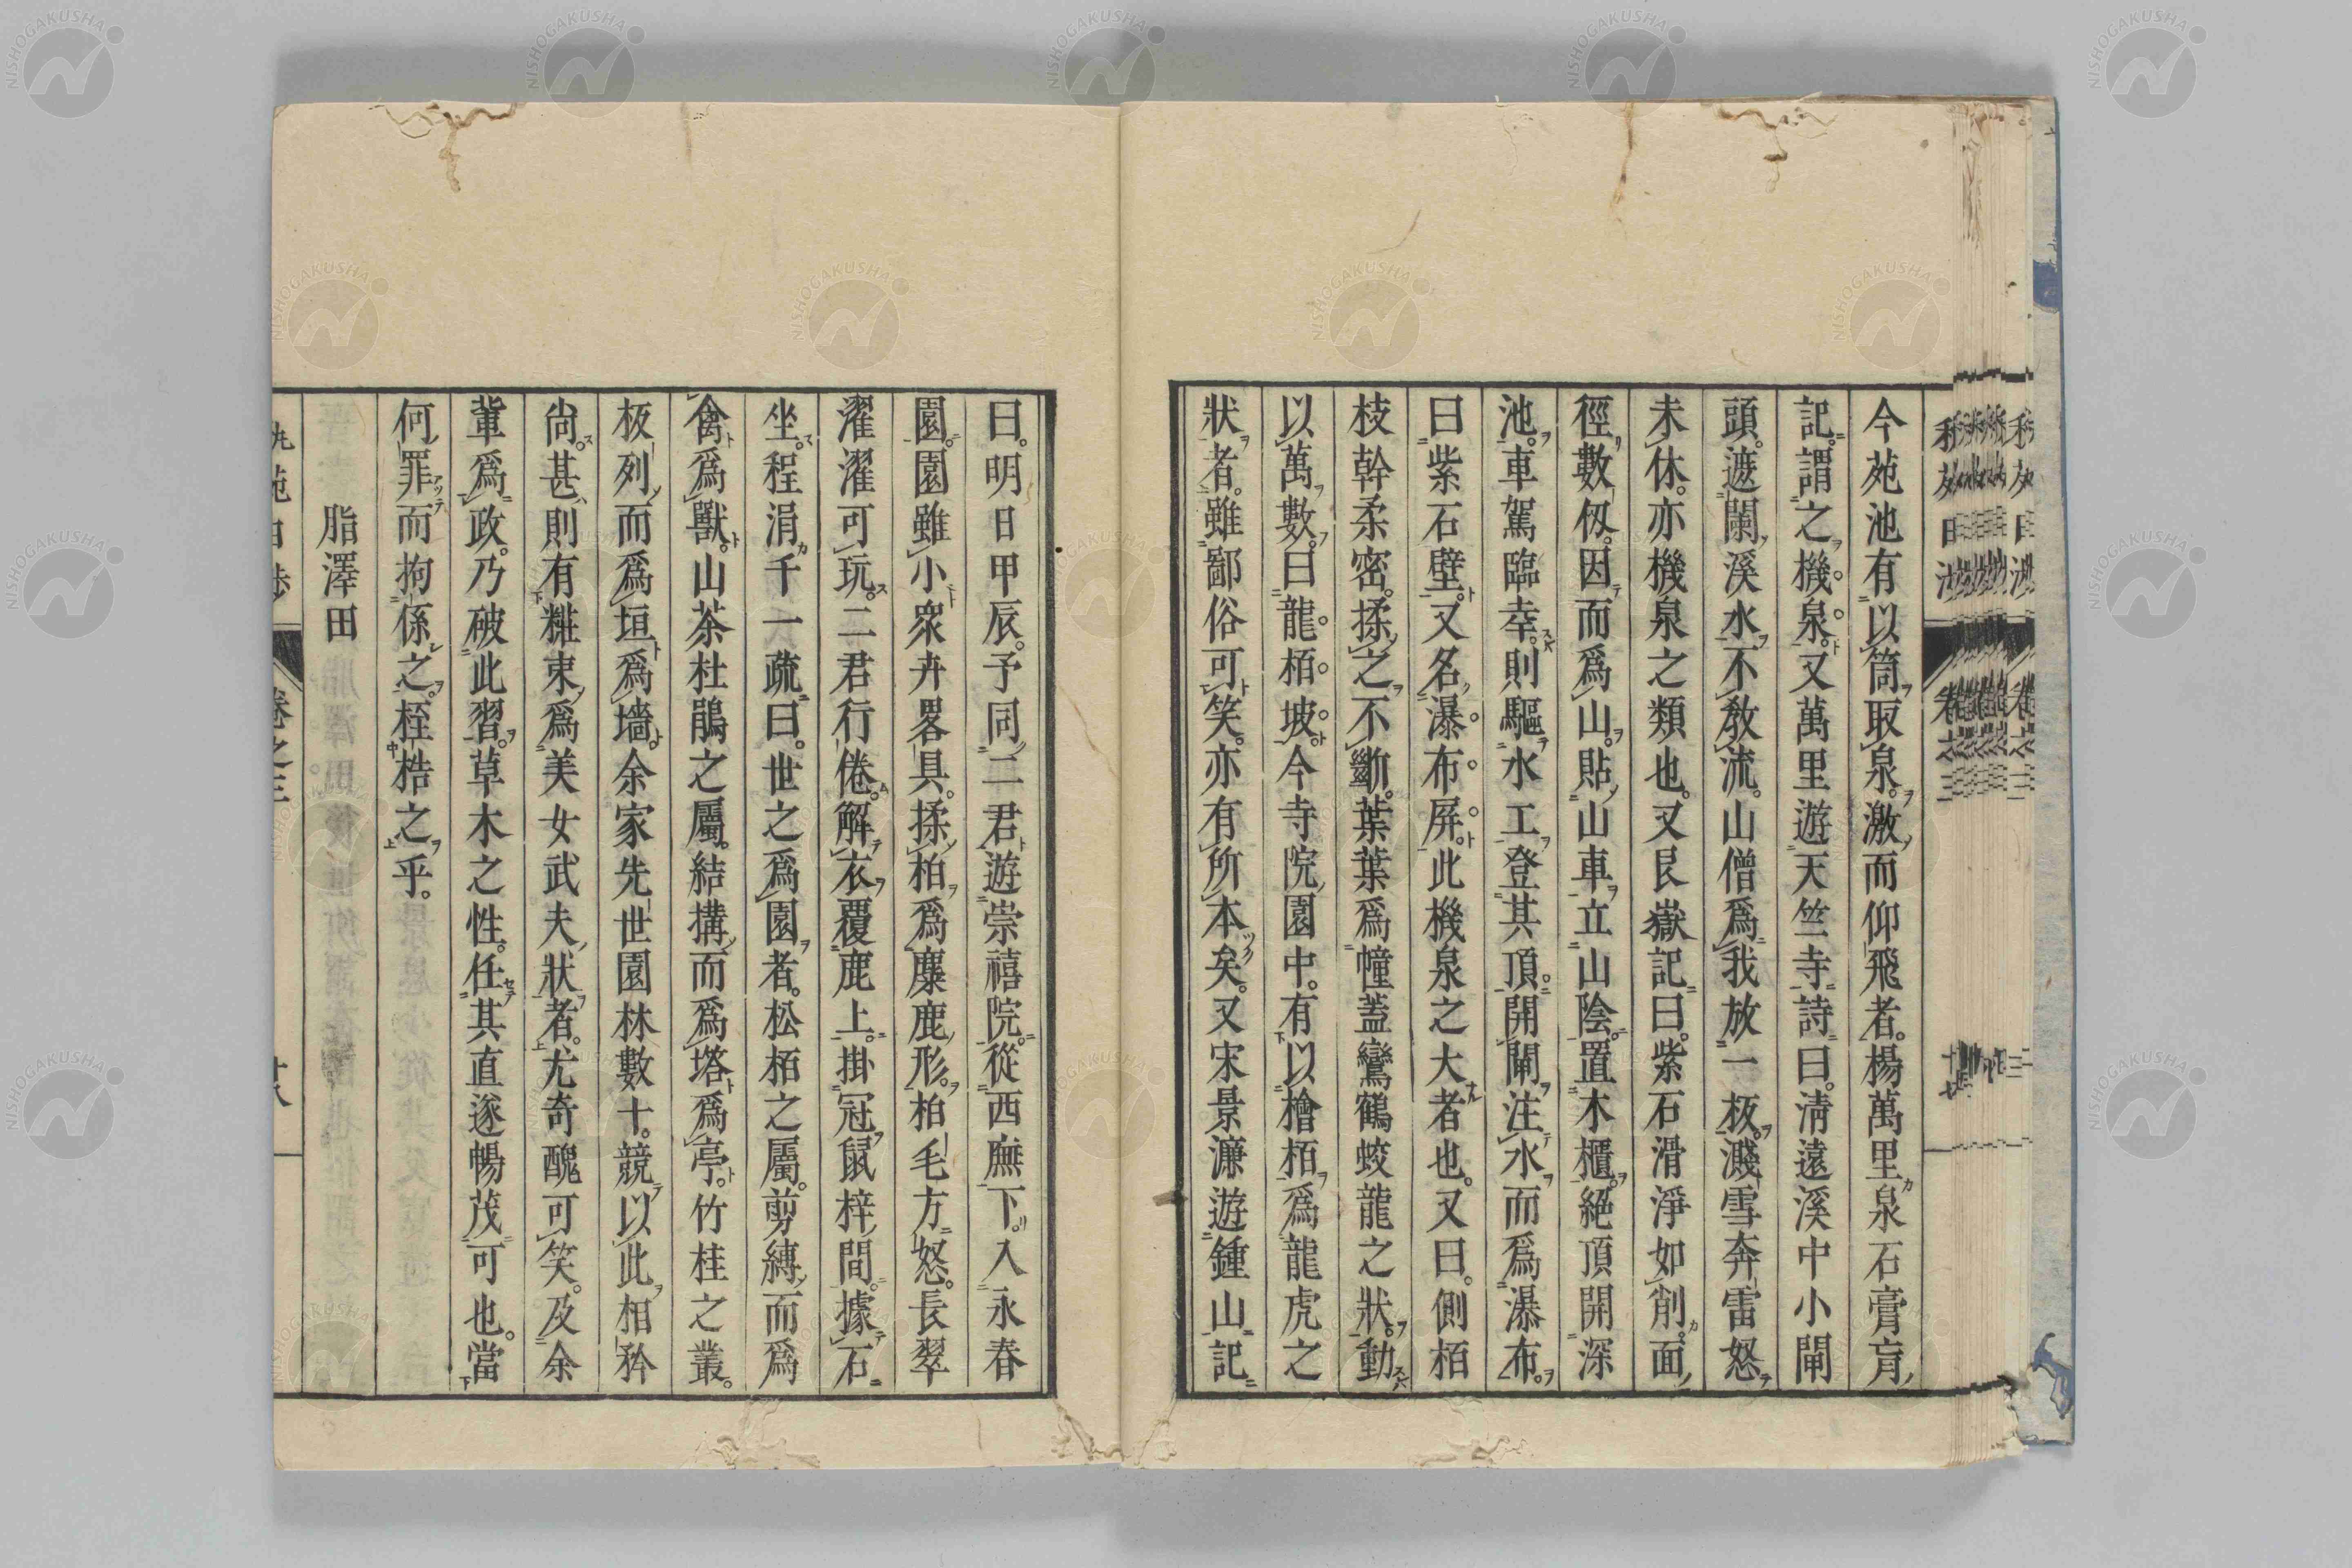 今苑池有以筒取泉激而仰飛者。楊萬里泉石膏肓
記謂之機泉。又萬里遊天竺寺詩曰。清遠溪中小閘
頭。遮闌溪水不教流。山僧爲我放一板。濺雪奔雷怒
未休。亦機泉之類也。又艮嶽記曰。紫石滑淨如削。面
徑數仭。因而爲山。貼山車立山陰。置木櫃絕頂開深
池。車駕臨幸。則驅水工登其頂。開閘注水而爲瀑布。
曰紫石壁。又名瀑布屏。此機泉之大者也。又曰。側栢
枝幹柔密。揉之不斷。葉葉爲幢蓋鸞鶴蛟龍之狀。動
以萬數。曰龍栢坡。今寺院園中。有以檜栢爲龍虎之
狀者。雖鄙俗可笑。亦有所本矣。又宋景濂遊鍾山記
曰。明日甲辰。予同二君遊崇禧院。從西廡下。入永春
園。園雖小衆卉畧具。揉柏爲麋鹿形。柏毛方怒。長翠
濯濯可玩。二君行倦。解衣覆鹿上。掛冠鼠梓間。據石
坐。程涓千一疏曰。世之爲園者。松栢之屬。剪縛而爲
禽爲獸。山茶杜鵑之屬。結搆而爲塔爲亭。竹桂之叢。
板列而爲垣爲墻。余家先世園林數十。競以此相矜
尚。甚則有糚束爲美女武夫狀者。尤奇醜可笑。及余
輩爲政。乃破此習。草木之性。任其直遂暢茂可也。當
何罪而拘係之。桎梏之乎。
脂澤田
卷之三